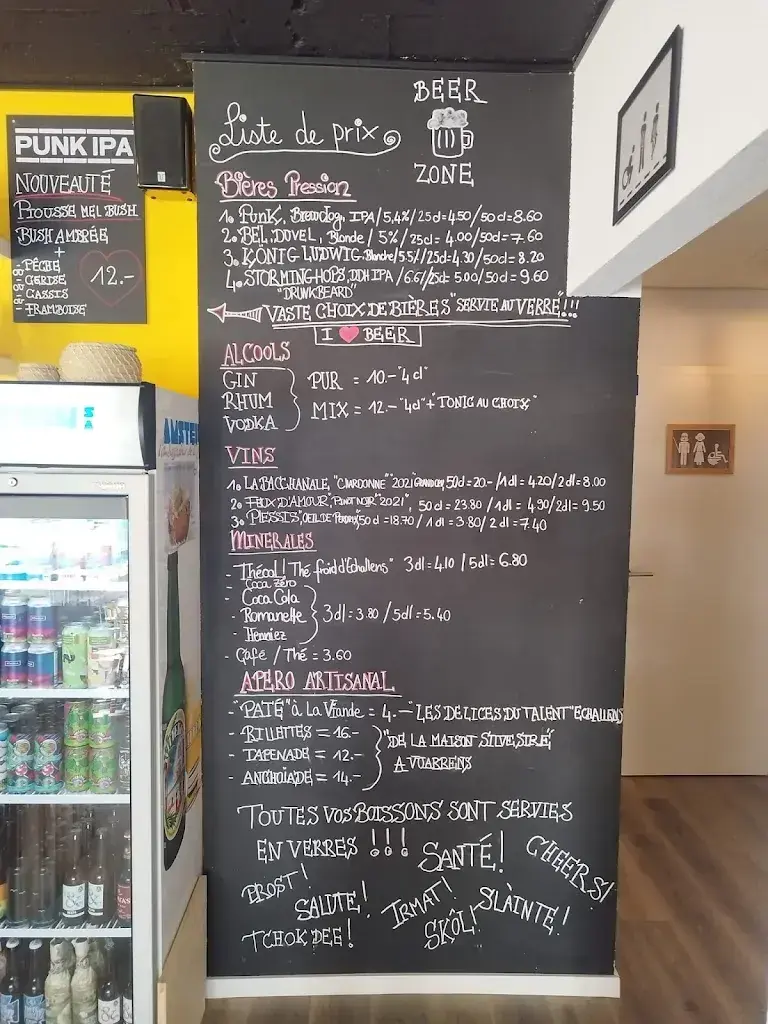 PUNK IPA
NOUVEAUTÉ
BUSH AMBRÉE
+
- PÊCHE
- CERISE
- CASSIS
- FRAMBOISE
12.-
Liste de prix
BEER
ZONE
Bières Pression
1. PUNK, Brewdog, IPA / 5,4% / 25cl = 4.50 / 50cl = 8.60
2. BEL, DUVEL, Blonde / 5% / 25cl = 4.00 / 50cl = 7.60
3. KÖNIG LUDWIG Blanche / 5.5% / 25cl = 4.30 / 50cl = 8.20
4. STORMING HOPS, DDH IPA / 6.6% / 25cl = 5.00 / 50cl = 9.60
"DRUNKBEARD"
VASTE CHOIX DE BIÈRES "SERVIE AU VERRE"!!!
I ❤ BEER
ALCOOLS
GIN
RHUM
VODKA
PUR = 10.- "4cl"
MIX = 12.- "4cl" + "TONIC AU CHOIX"
VINS
1. LA BACCHANALE, "CHARDONNE" "2021" 50cl = 20.- / 1dl = 4.20 / 2dl = 8.00
2. FEUX D'AMOUR, "PINOT NOIR" "2021", 50cl = 23.80 / 1dl = 4.90 / 2dl = 9.50
3. PLESSIS, "OEIL DE PERDRIX" 50cl = 18.70 / 1dl = 3.80 / 2dl = 7.40
MINERALES
- Thécol! Thé froid d'Échallens" 3dl = 4.10 / 5dl = 6.80
- Coca Zéro
- Coca Cola
- Romanette
- Henniez
3dl = 3.80 / 5dl = 5.40
- Café / Thé = 3.60
APÉRO ARTISANAL
- "PATÉ" à La Viande = 4.- LES DELICES DU TALENT "ECHALLENS
- RILLETTES = 16.-
- TAPENADE = 12.-
- ANCHOIADE = 14.-
"DE LA MAISON SILVESTRE
A VUARRENS
TOUTES VOS BOISSONS SONT SERVIES
EN VERRES !!!
SANTÉ!
CHEERS!
PROST!
SALUTE!
IRMAT!
SLÀINTE!
TCHOK DEE!
SKÖL!